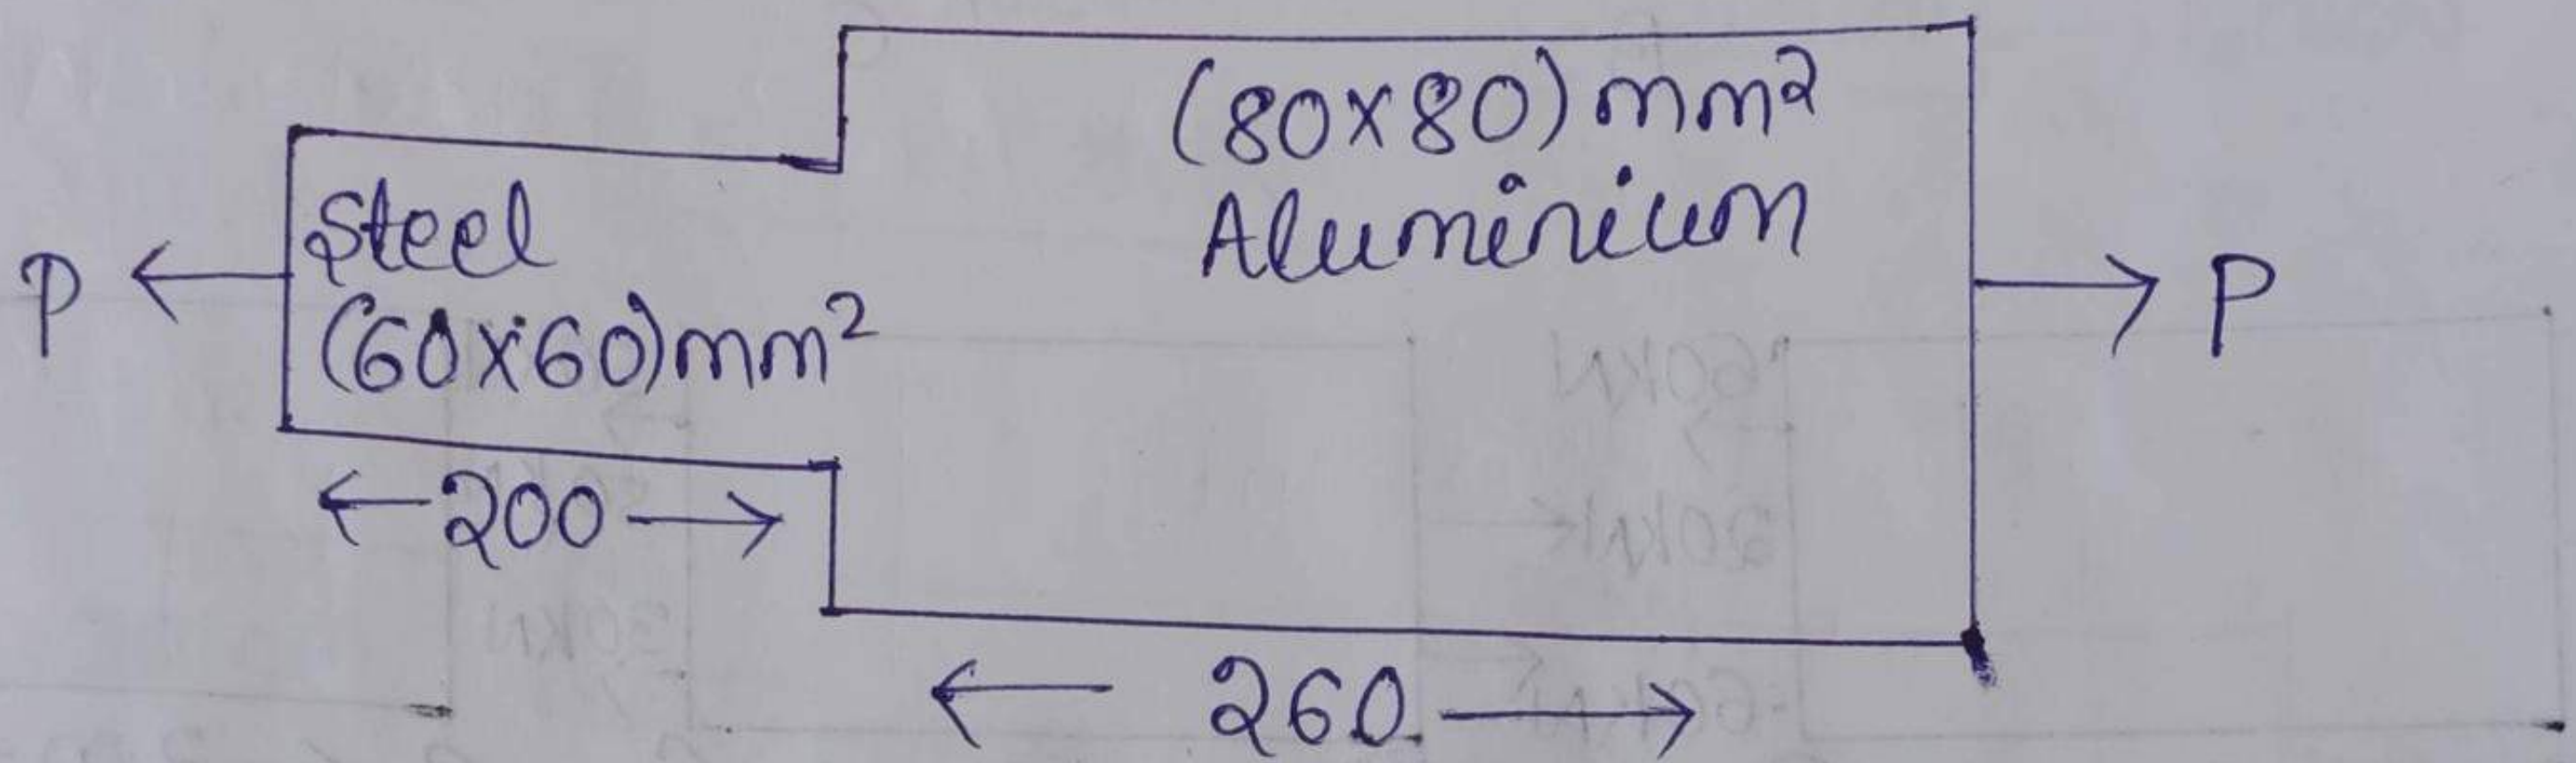 (80x80) mm²
Aluminium
Steel
(60x60) mm²
P
P
200
260
60KN